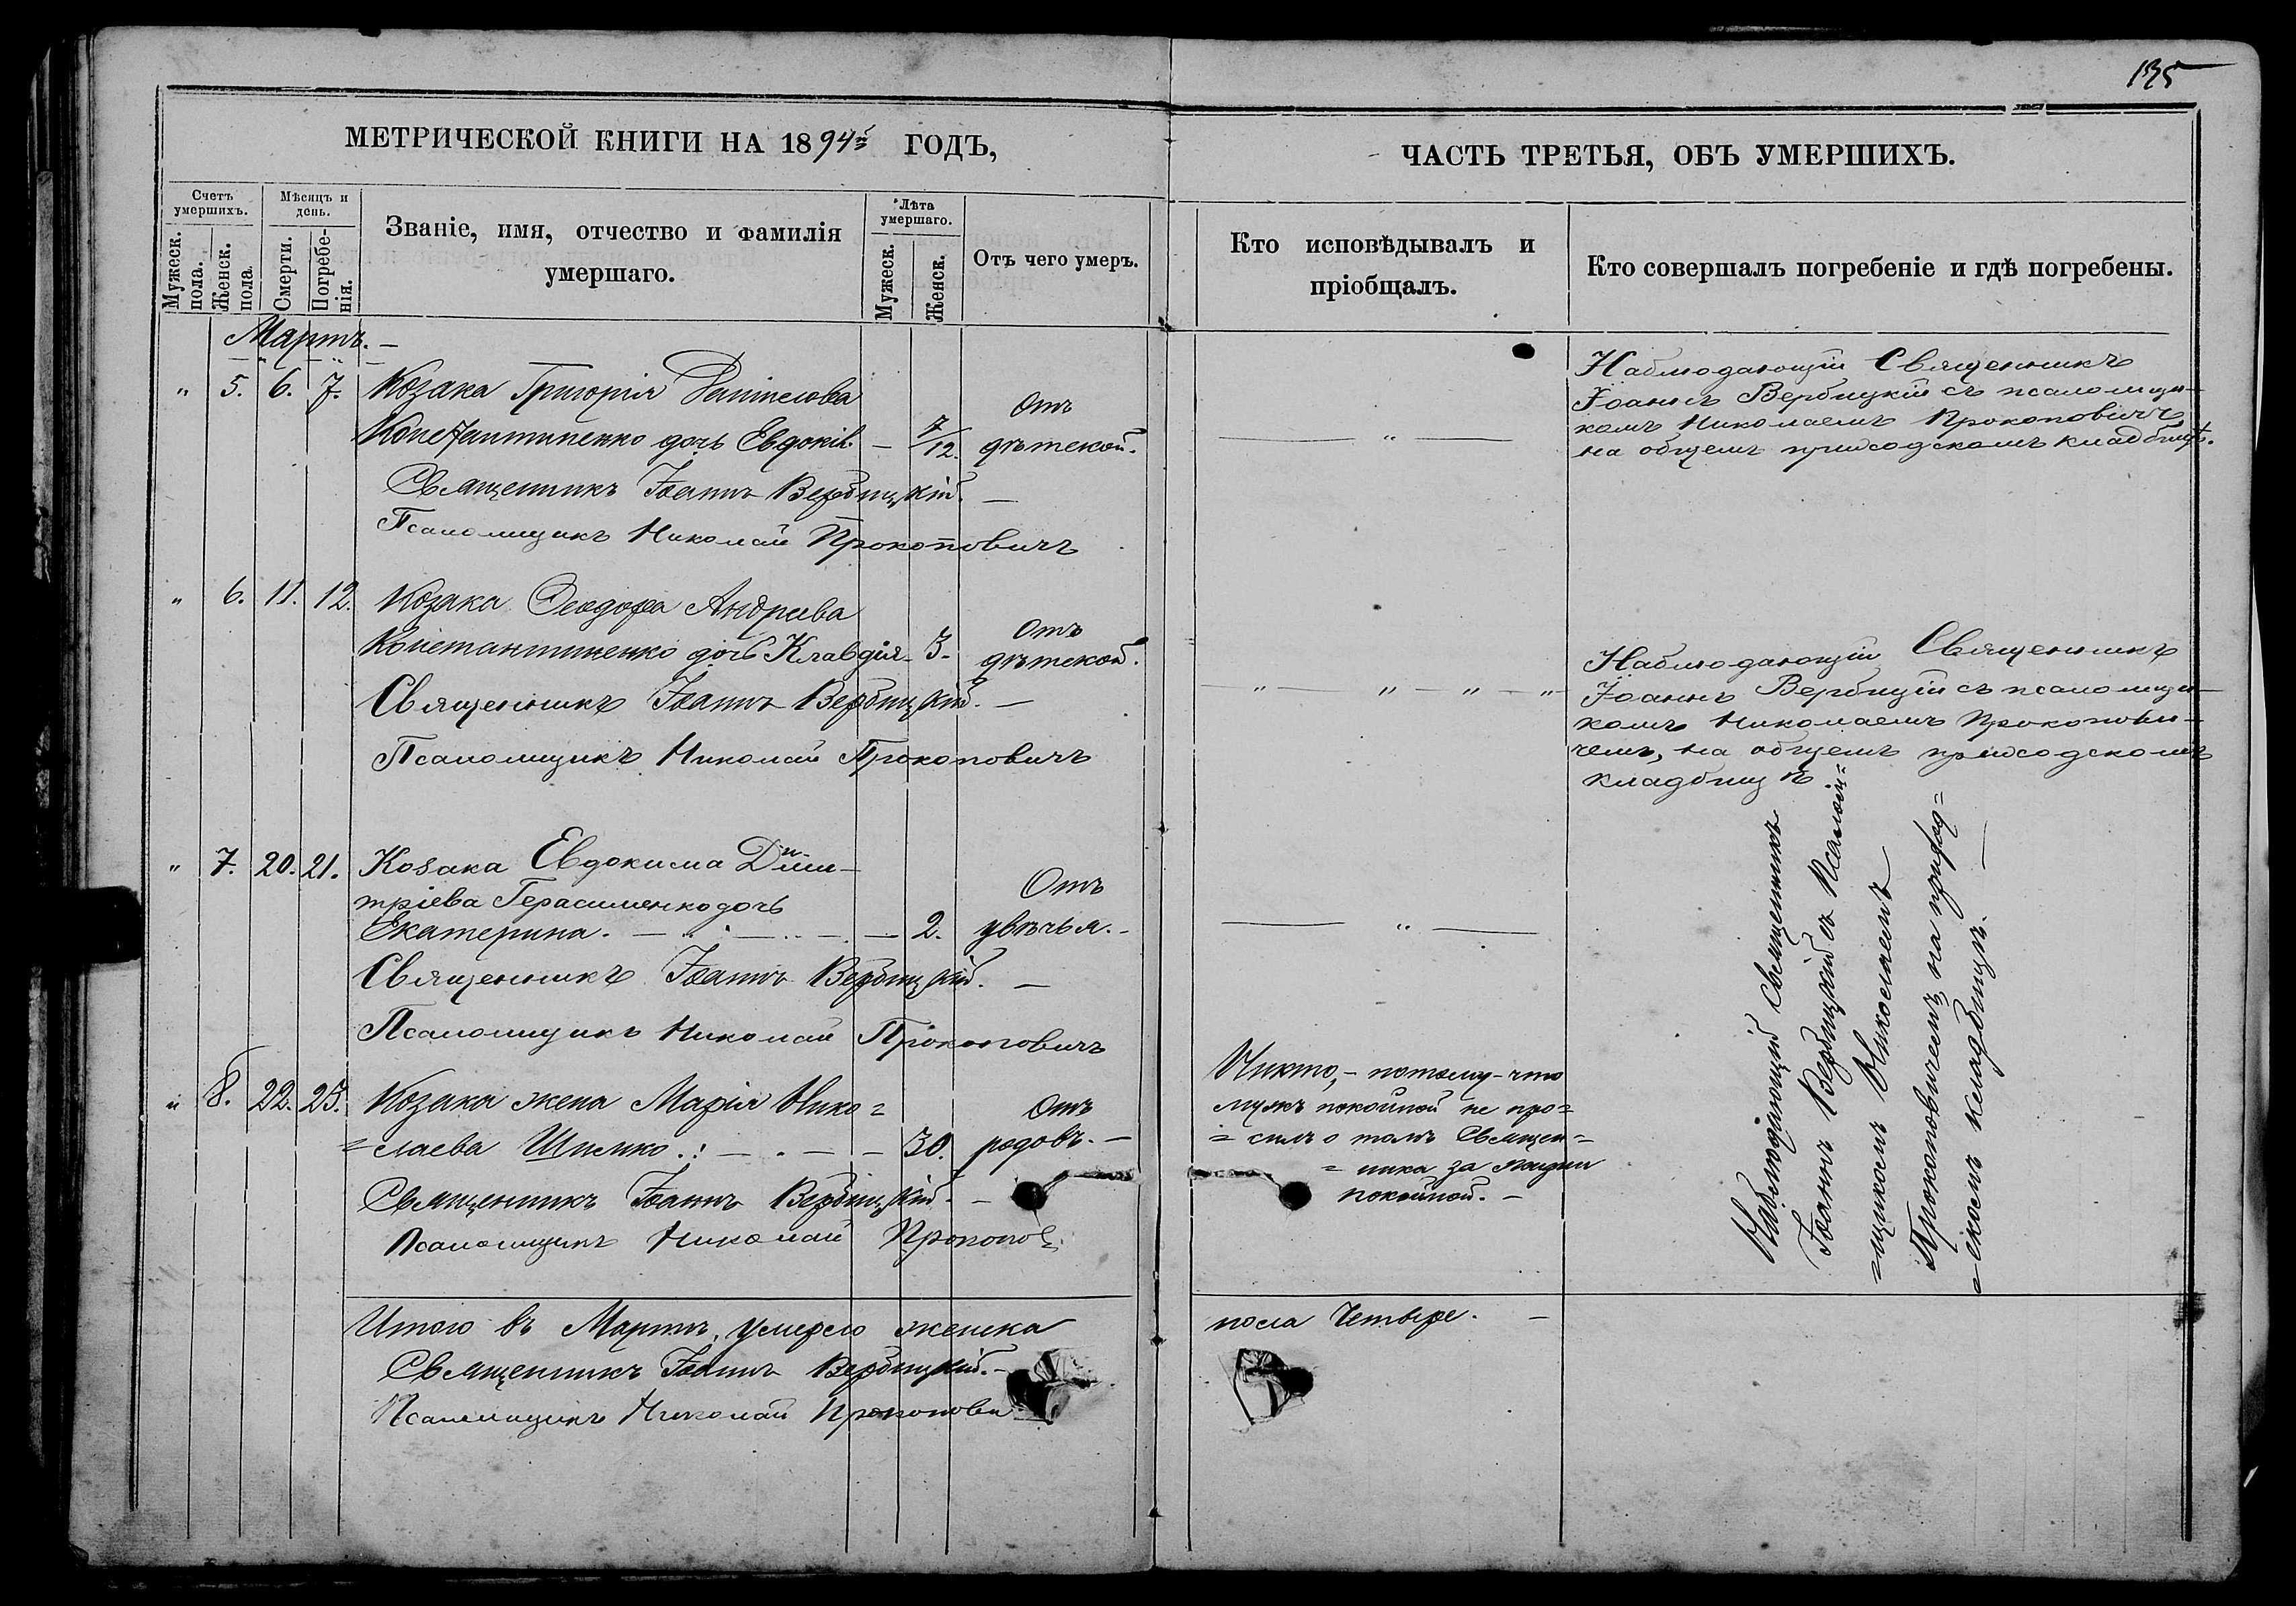 135
МЕТРИЧЕСКОЙ КНИГИ НА 1894й ГОДЪ,
ЧАСТЬ ТРЕТЬЯ, ОБЪ УМЕРШИХЪ.
Счетъ умершихъ.
Мужеск. пола.
Женск. пола.
Мѣсяцъ и день.
Смерти.
Погребе-
нія.
Званіе, имя, отчество и фамилія
умершаго.
Лѣта
умершаго.
Мужеск.
Женск.
Отъ чего умеръ.
Кто исповѣдывалъ и
пріобщалъ.
Кто совершалъ погребеніе и гдѣ погребены.
Мартъ. —
" 5. 6. 7. Козака Григорія
Константиненко дочь Евдокія — 7/12.
Отъ
дѣтской.
— " —
Наблюдающій Священникъ
Іоаннъ Вербицкій съ псаломщи-
комъ Николаемъ Прокоповичъ
на общемъ приходскомъ кладбищѣ.
Священникъ Іоаннъ Вербицкій. —
Псаломщикъ Николай Прокоповичъ
" 6. 11. 12. Козака Ѳеодора Андреева
Константиненко дочь Клавдія — 3.
Отъ
дѣтской.
— " — " — " — "
Наблюдающій Священникъ
Іоаннъ Вербицкій съ псаломщи-
комъ Николаемъ Прокопови-
чемъ, на общемъ приходскомъ
кладбищѣ.
Священникъ Іоаннъ Вербицкій. —
Псаломщикъ Николай Прокоповичъ
" 7. 20. 21. Козака Евдокима Дими-
тріева Герасименко дочь
Екатерина. — 2.
Отъ
увѣчья. -
— " —
Священникъ Іоаннъ Вербицкій. —
Псаломщикъ Николай Прокоповичъ
" 8. 22. 25. Козака жена Марія Нико=
=лаева Шилико .: — . — — 30.
Отъ
родовъ. —
Никто, - потому-что
мужъ покойной не про=
=силъ о томъ Священ=
=ника за жизни
покойной. —
Наблюдающій Священникъ
Іоаннъ Вербицкій съ Псалом=
=щикомъ Николаемъ
Прокоповичемъ, на приход=
=скомъ кладбищѣ. —
Священникъ Іоаннъ Вербицкій. —
Псаломщикъ Николай Прокопов
Итого въ Мартѣ, умерло женска пола Четыре. —
Священникъ Іоаннъ Вербицкій. —
Псаломщикъ Николай Прокопови